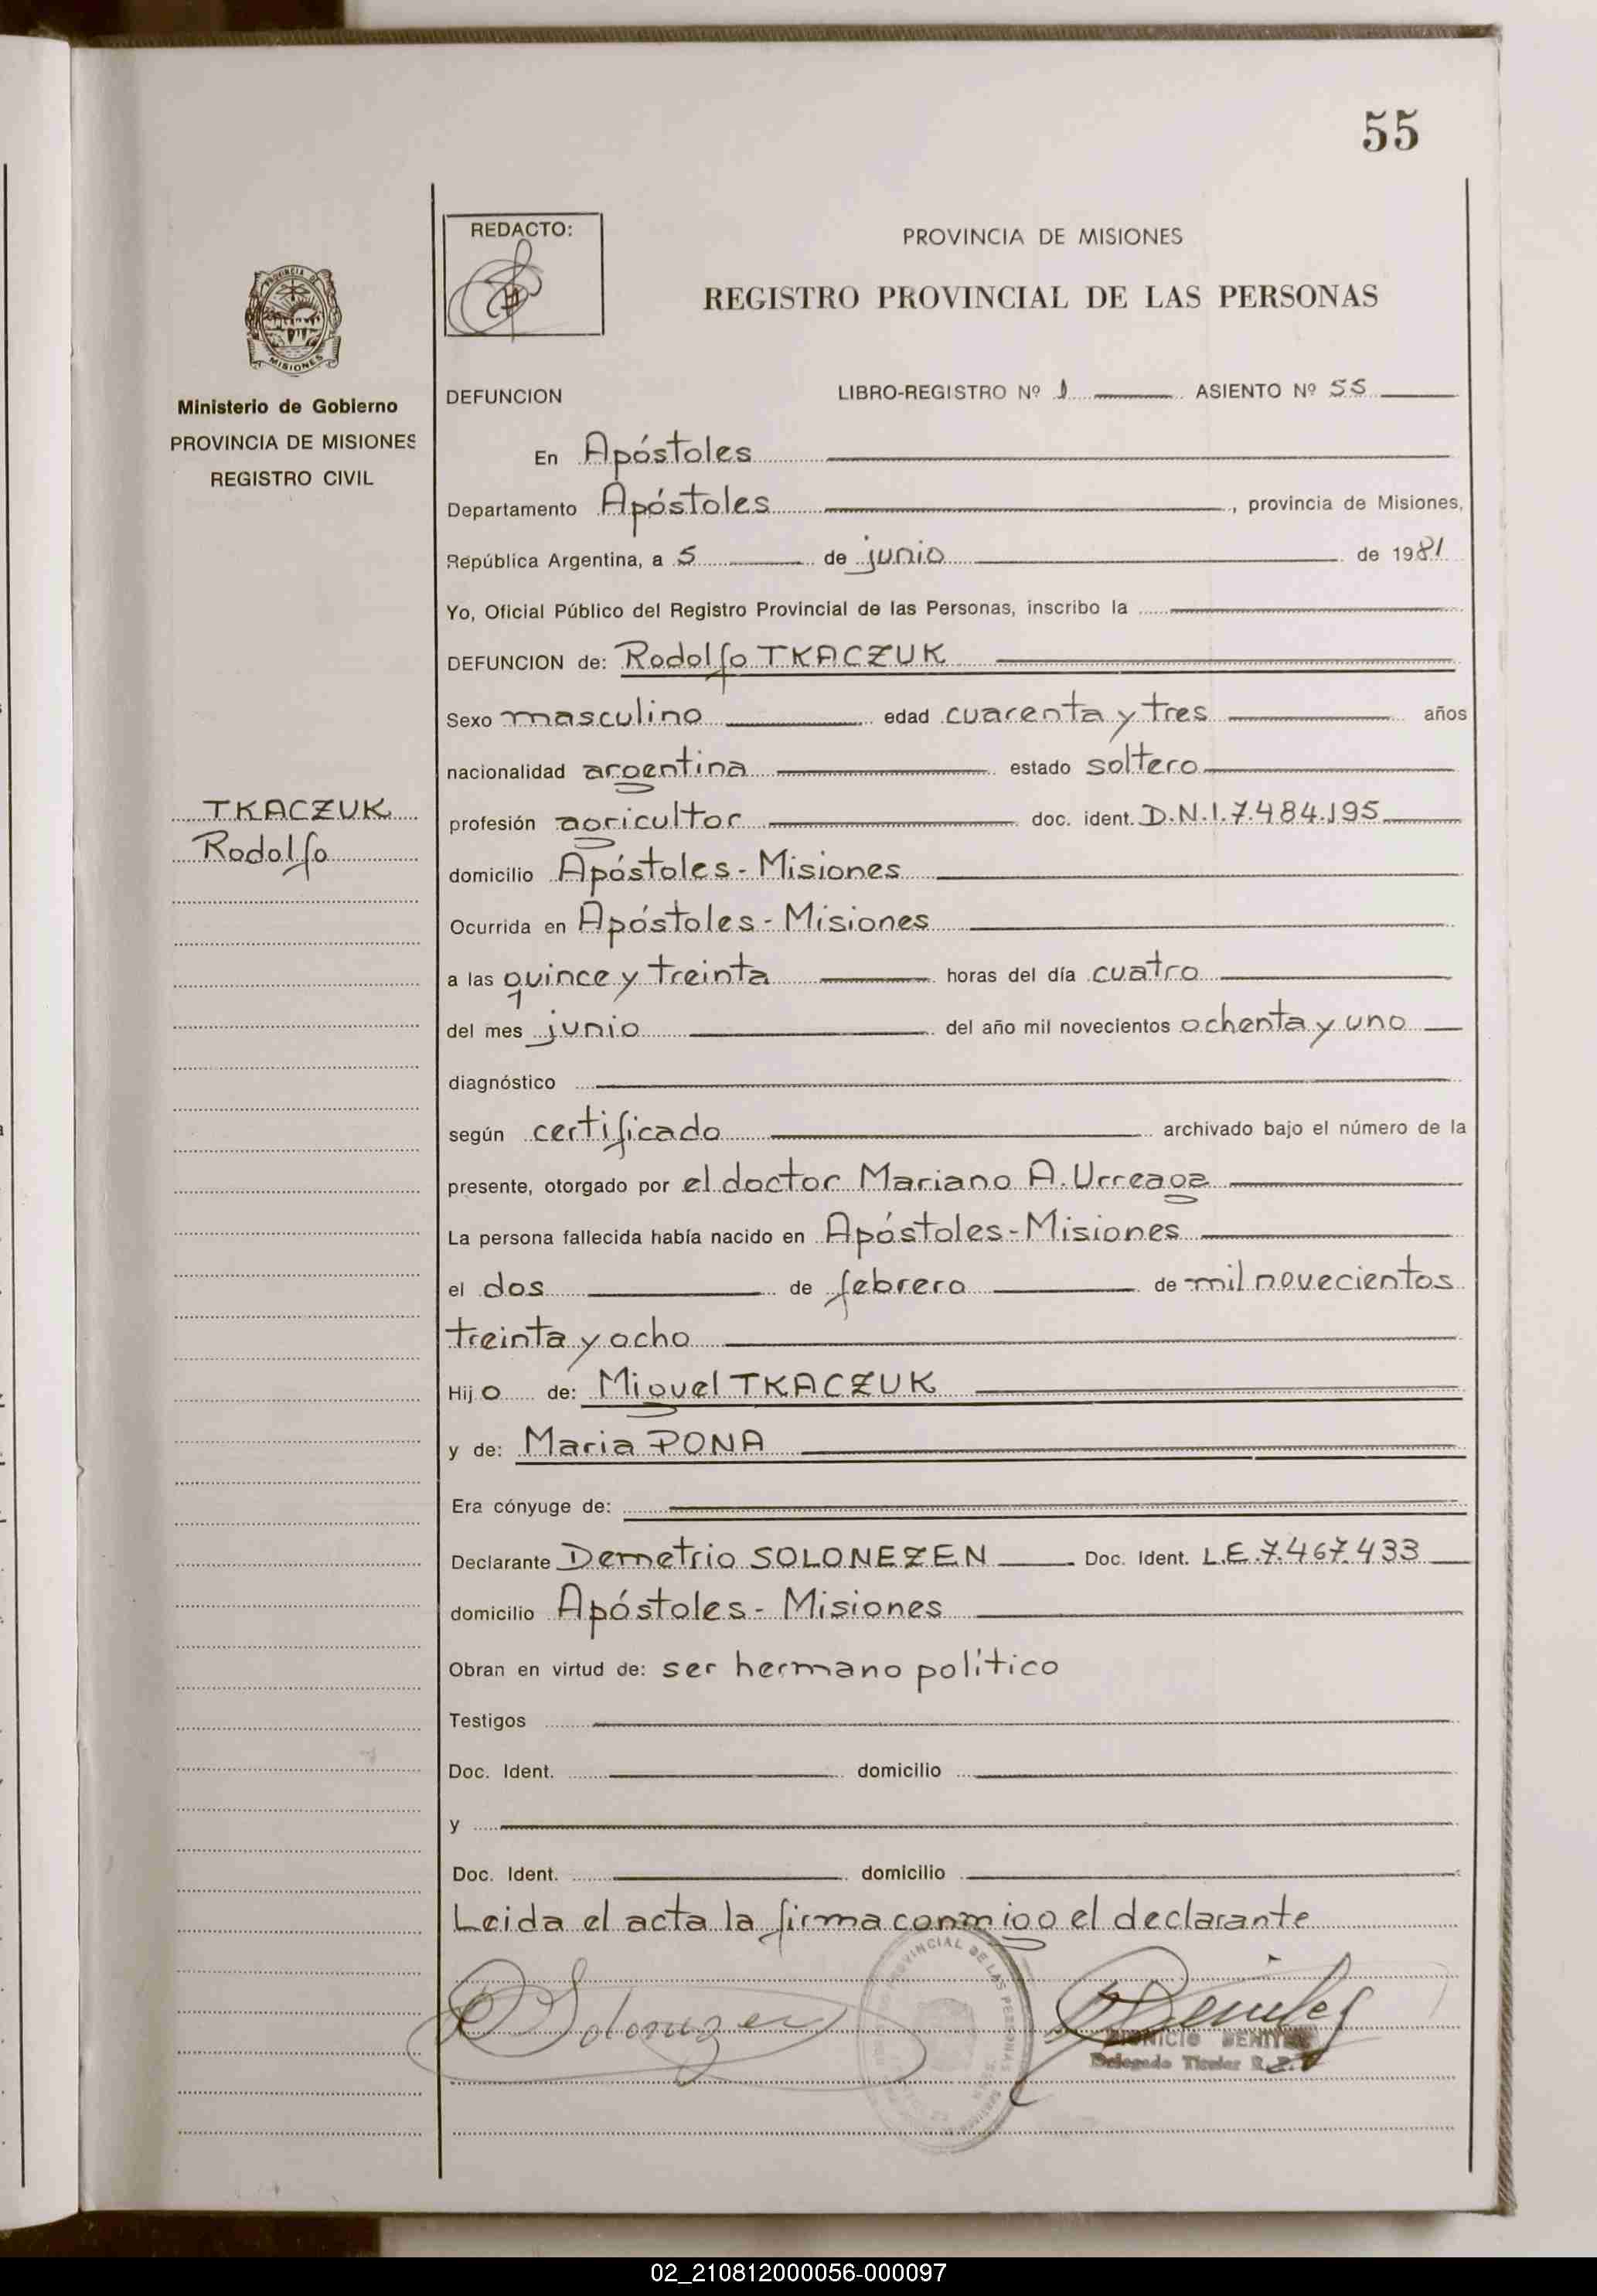 55
REDACTO:
PROVINCIA DE MISIONES
REGISTRO PROVINCIAL DE LAS PERSONAS
MISIONES
Ministerio de Gobierno
PROVINCIA DE MISIONES
REGISTRO CIVIL
DEFUNCION LIBRO-REGISTRO Nº 1 ASIENTO Nº 55
En Apóstoles
Departamento Apóstoles, provincia de Misiones,
República Argentina, a 5 de junio de 1981
Yo, Oficial Público del Registro Provincial de las Personas, inscribo la
DEFUNCION de: Rodolfo TKACZUK
Sexo masculino edad cuarenta y tres años
nacionalidad argentina estado soltero
TKACZUK
Rodolfo
profesión agricultor doc. ident. D.N.I. 7.484.195
domicilio Apóstoles - Misiones
Ocurrida en Apóstoles - Misiones
a las quince y treinta horas del día cuatro
del mes junio del año mil novecientos ochenta y uno
diagnóstico
según certificado archivado bajo el número de la
presente, otorgado por el doctor Mariano A. Urreaga
La persona fallecida había nacido en Apóstoles - Misiones
el dos de febrero de mil novecientos
treinta y ocho
Hijo de: Miguel TKACZUK
y de: Maria PONA
Era cónyuge de:
Declarante Demetrio SOLONEZEN Doc. Ident. L.E. 7.467.433
domicilio Apóstoles - Misiones
Obran en virtud de: ser hermano político
Testigos
Doc. Ident. domicilio
y
Doc. Ident. domicilio
Leida el acta la firma conmigo el declarante
PROVINCIAL DE LAS PERSONAS
DIONICIO BENITEZ
Delegado Titular R. P.
02_210812000056-000097